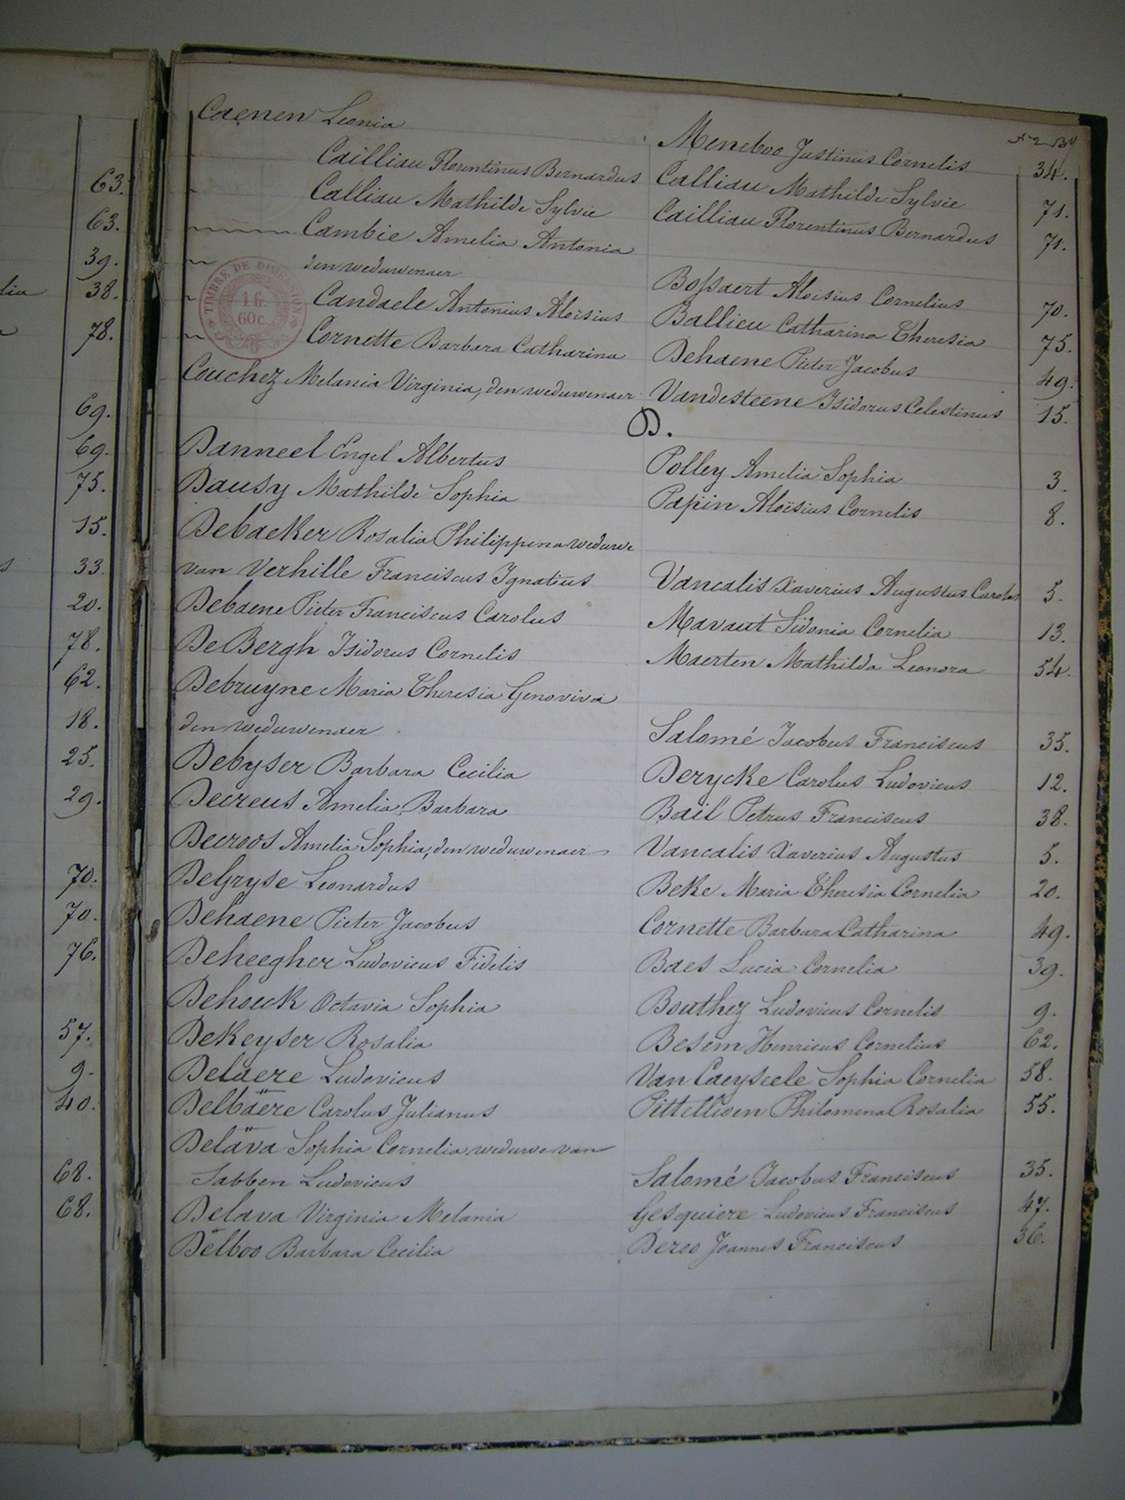 Caenen Leonia Meneboo Justinus Cornelis 34.
Cailliau Florentinus Bernardus Calliau Mathilde Sylvie 71.
Calliau Mathilde Sylvie Cailliau Florentinus Bernardus 71.
Cambie Amelia Antonia
den weduwenaer Bossaert Aloisius Cornelius 70.
Candaele Antonius Aloisius Ballieu Catharina Theresia 75.
Cornette Barbara Catharina Dehaene Pieter Jacobus 49.
Couchez Melania Virginia, den weduwenaer Vandesteene Isidorus Celestinus 15.
D.
Danneel Engel Albertus Polley Amelia Sophia 3.
Dausy Mathilde Sophia Papin Aloïsius Cornelis 8.
Debacker Rosalia Philippina weduwe
van Verhille Franciscus Ignatius Vancalis Xaverius Augustus 5.
Debaene Pieter Franciscus Carolus Mavaut Sidonia Cornelia 13.
De Bergh Isidorus Cornelis Maerten Mathilda Leonora 54.
Debruyne Maria Theresia Genoviva
den weduwenaer Salomé Jacobus Franciscus 35.
Debyser Barbara Cecilia Derycke Carolus Ludovicus 12.
Decreus Amelia Barbara Bail Petrus Franciscus 38.
Decroos Amelia Sophia, den weduwenaer Vancalis Xaverius Augustus 5.
DeGryse Leonardus Beke Maria Theresia Cornelia 20.
Dehaene Pieter Jacobus Cornette Barbara Catharina 49.
Deheegher Ludovicus Fidelis Baes Lucia Cornelia 39.
Dehouck Octavia Sophia Bouthez Ludovicus Cornelis 9.
DeKeyser Rosalia Besem Henricus Cornelius 62.
Delaere Ludovicus Van Caeyseele Sophia Cornelia 58.
Delbaere Carolus Julianus Pittellioen Philomena Rosalia 55.
Delava Sophia Cornelia weduwe van
Sabben Ludovicus Salomé Jacobus Franciscus 35.
Delava Virginia Melania Gesquiere Ludovicus Franciscus 47.
Delboo Barbara Cecilia Deroo Joannes Franciscus 36.
TIMBRE DE DIMENSION
16
60c.
63.
63.
39.
38.
78.
69.
69.
75.
15.
33.
20.
78.
62.
18.
25.
29.
70.
70.
76.
57.
9.
40.
68.
68.